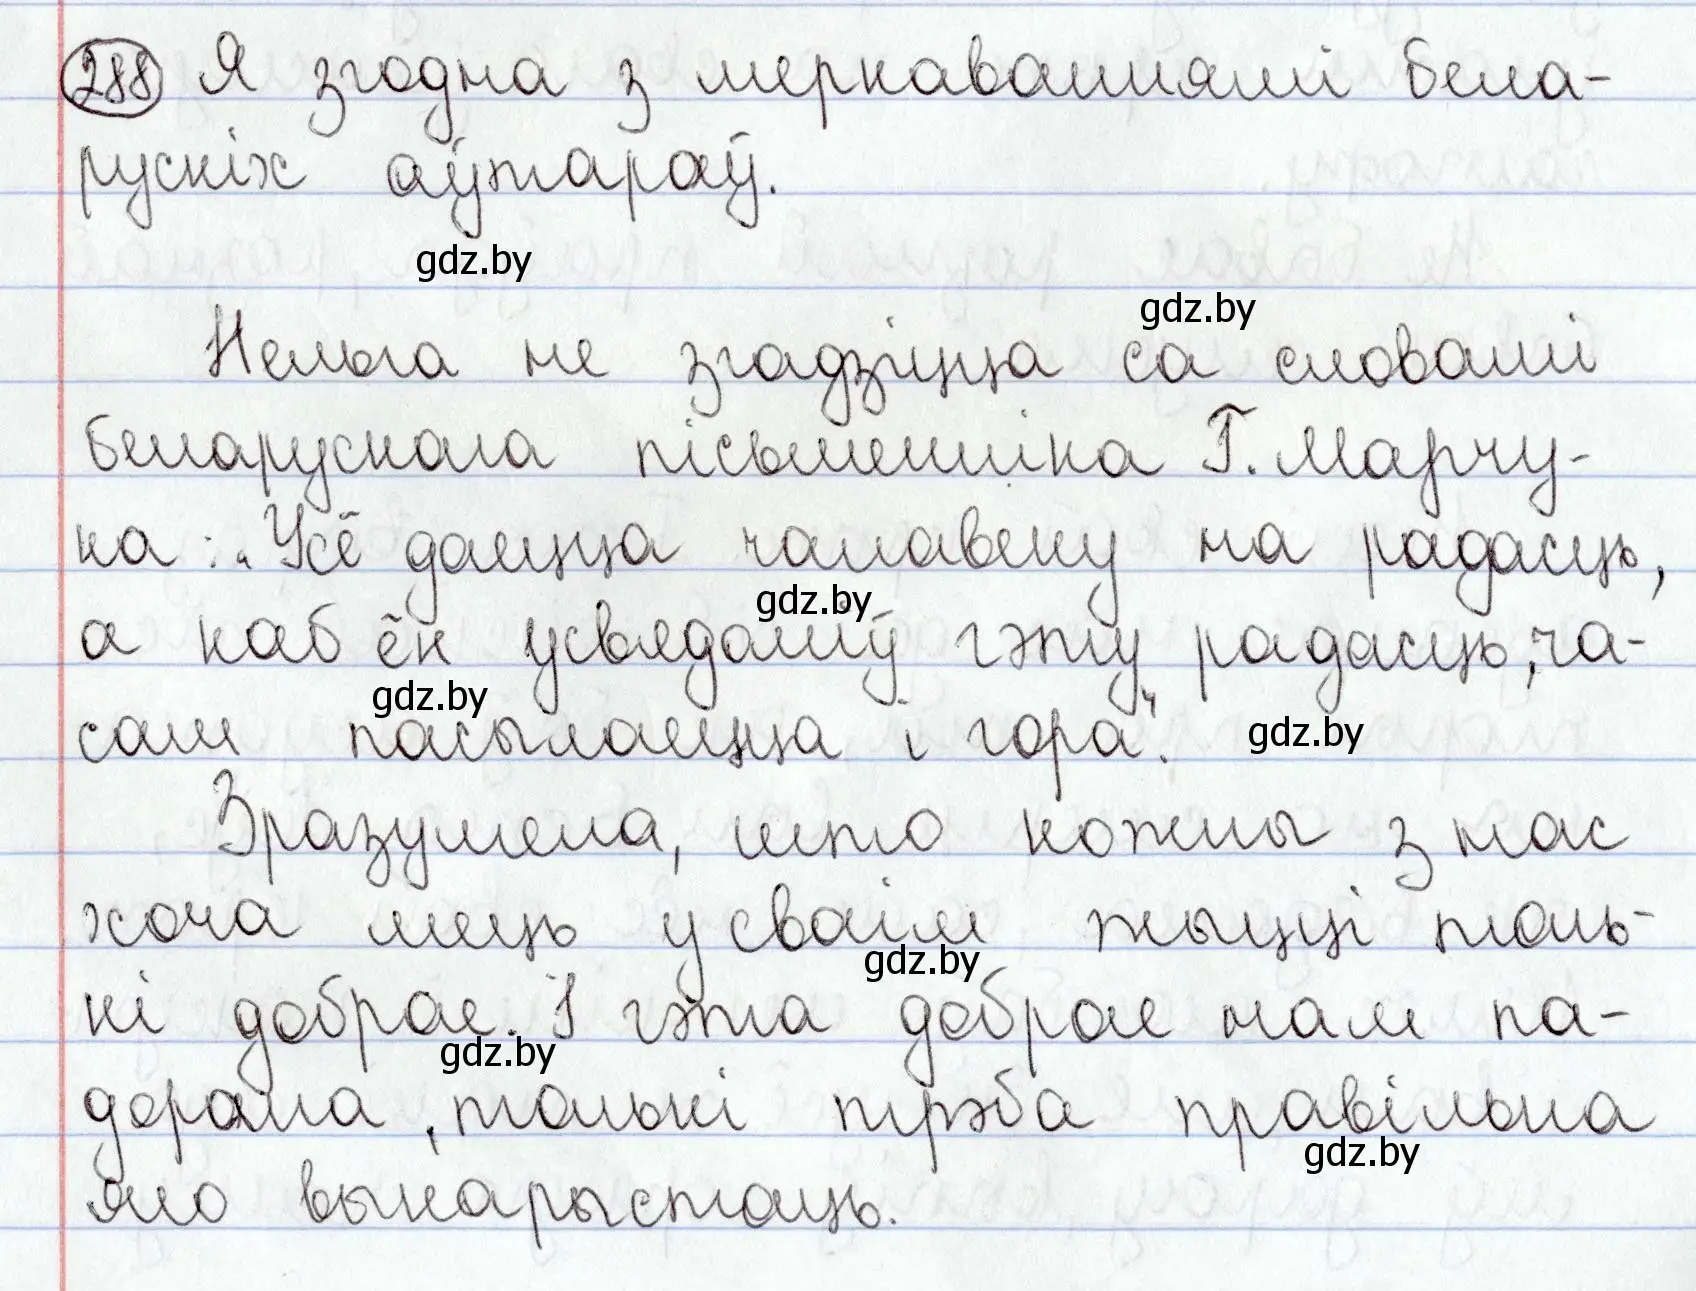 288 Я згодна з меркаваннямі бела-
рускіх аўтараў.
gdz.by
gdz.by
Нельга не згадзіцца са словамі
беларускага пісьменніка Г. Марчу-
ка: „Усё даецца чалавеку на радасць,
gdz.by
а каб ён усвядоміў гэту радасць, ча-
gdz.by
сам пасылаецца і гора".
gdz.by
Зразумела, што кожны з нас
хоча мець у сваім жыцці толь-
gdz.by
кі добрае. І гэта добрае нам па-
gdz.by
доран­а, толькі трэба правільна
gdz.by
яго выкарыстаць.